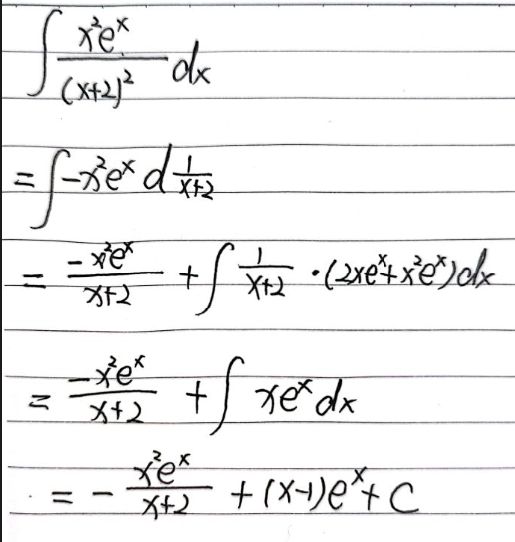 ∫ x²eˣ/(x+2)² dx
= ∫ -x²eˣ d 1/(x+2)
= -x²eˣ/(x+2) + ∫ 1/(x+2) · (2xeˣ + x²eˣ) dx
= -x²eˣ/(x+2) + ∫ xeˣ dx
= - x²eˣ/(x+2) + (x-1)eˣ + C